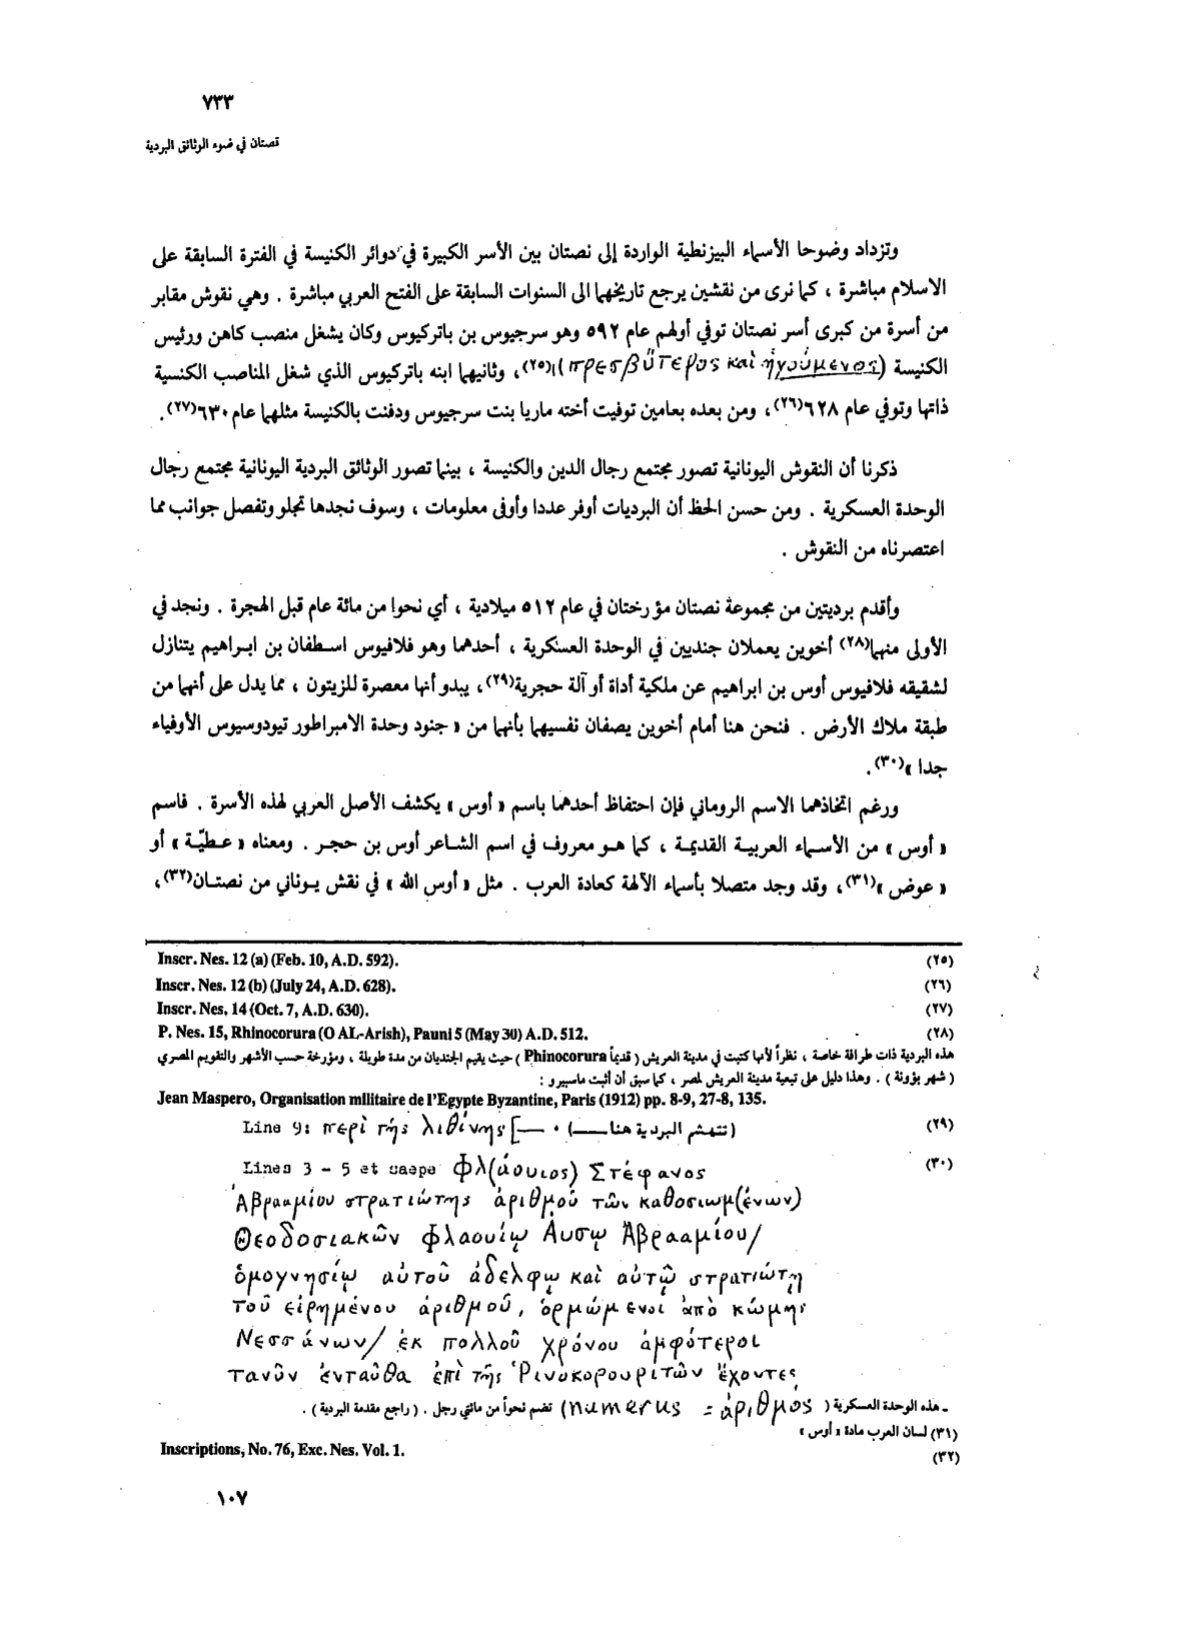 ٧٣٣
قصتان في ضوء الوثائق البردية
وتزداد وضوحا الأسماء البيزنطية الواردة إلى نصتان بين الأسر الكبيرة في دوائر الكنيسة في الفترة السابقة على
الاسلام مباشرة ، كما نرى من نقشين يرجع تاريخهما الى السنوات السابقة على الفتح العربي مباشرة . وهي نقوش مقابر
من أسرة من كبرى أسر نصتان توفي أولهم عام ٥٩٢ وهو سرجيوس بن باتركيوس وكان يشغل منصب كاهن ورئيس
الكنيسة (πρεσβύτερος καὶ ἡγούμενος)(٢٥)، وثانيهما ابنه باتركيوس الذي شغل المناصب الكنسية
ذاتها وتوفي عام ٦٢٨(٢٦)، ومن بعده بعامين توفيت أخته ماريا بنت سرجيوس ودفنت بالكنيسة مثلهما عام ٦٣٠(٢٧).
ذكرنا أن النقوش اليونانية تصور مجتمع رجال الدين والكنيسة ، بينما تصور الوثائق البردية اليونانية مجتمع رجال
الوحدة العسكرية . ومن حسن الحظ أن البرديات أوفر عددا وأوفى معلومات ، وسوف نجدها تجلو وتفصل جوانب مما
اعتصرناه من النقوش .
وأقدم برديتين من مجموعة نصتان مؤرختان في عام ٥١٢ ميلادية ، أي نحوا من مائة عام قبل الهجرة . ونجد في
الأولى منهما(٢٨) أخوين يعملان جنديين في الوحدة العسكرية ، أحدهما وهو فلافيوس اسطفان بن ابراهيم يتنازل
لشقيقه فلافيوس أوس بن ابراهيم عن ملكية أداة أو آلة حجرية(٢٩)، يبدو أنها معصرة للزيتون ، مما يدل على أنهما من
طبقة ملاك الأرض . فنحن هنا أمام أخوين يصفان نفسيهما بأنهما من « جنود وحدة الامبراطور تيودوسيوس الأوفياء
جدا »(٣٠).
ورغم اتخاذهما الاسم الروماني فإن احتفاظ أحدهما باسم « أوس » يكشف الأصل العربي لهذه الأسرة . فاسم
« أوس » من الأسماء العربية القديمة ، كما هو معروف في اسم الشاعر أوس بن حجر . ومعناه « عطيّة » أو
« عوض »(٣١)، وقد وجد متصلا بأسماء الآلهة كعادة العرب . مثل « أوس الله » في نقش يوناني من نصتان(٣٢)،
Inscr. Nes. 12 (a) (Feb. 10, A.D. 592). (٢٥)
Inscr. Nes. 12 (b) (July 24, A.D. 628). (٢٦)
Inscr. Nes. 14 (Oct. 7, A.D. 630). (٢٧)
P. Nes. 15, Rhinocorura (O AL-Arish), Pauni 5 (May 30) A.D. 512. (٢٨)
هذه البردية ذات طرافة خاصة ، نظراً لأنها كتبت في مدينة العريش ( قديماً Phinocorura ) حيث يقيم الجنديان من مدة طويلة ، ومؤرخة حسب الأشهر والتقويم المصري
( شهر بؤونة ) . وهذا دليل على تبعية مدينة العريش لمصر ، كما سبق أن أثبت ماسبيرو :
Jean Maspero, Organisation militaire de l'Egypte Byzantine, Paris (1912) pp. 8-9, 27-8, 135.
Line 9: περὶ τῆς λιθίνης [— · (—تتهشم البردية هنا) (٢٩)
Lines 3 - 5 et saepe Φλ(άουιος) Στέφανος (٣٠)
Ἀβρααμίου στρατιώτης ἀριθμοῦ τῶν καθοσιωμ(ένων)
Θεοδοσιακῶν Φλαουίῳ Αυσῳ Ἀβρααμίου/
ὁμογνησίῳ αὐτοῦ ἀδελφῳ καὶ αὐτῷ στρατιώτῃ
τοῦ εἰρημένου ἀριθμοῦ, ὁρμώμενοι ἀπὸ κώμης
Νεσσάνων/ ἐκ πολλοῦ χρόνου ἀμφότεροι
τανῦν ἐνταῦθα ἐπὶ τῆς Ῥινοκορουριτῶν ἔχοντες
ـ هذه الوحدة العسكرية ( numerus = ἀριθμός) تضم نحواً من مائتي رجل . ( راجع مقدمة البردية ) .
(٣١) لسان العرب مادة « أوس »
Inscriptions, No. 76, Exc. Nes. Vol. 1. (٣٢)
١٠٧